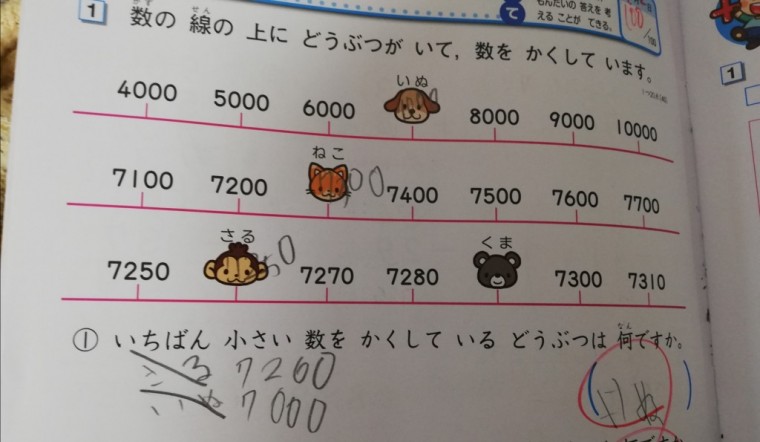 て もんだいの 答えを 考
える ことが できる。
100
/100
1 数の 線の 上に どうぶつが いて, 数を かくして います。
かず せん
いぬ
4000 5000 6000 8000 9000 10000
ねこ
7100 7200 7400 7500 7600 7700
さる くま
7250 7270 7280 7300 7310
① いちばん 小さい 数を かくして いる どうぶつは 何ですか。
なん
さる 7260
いぬ 7000
(いぬ)
1